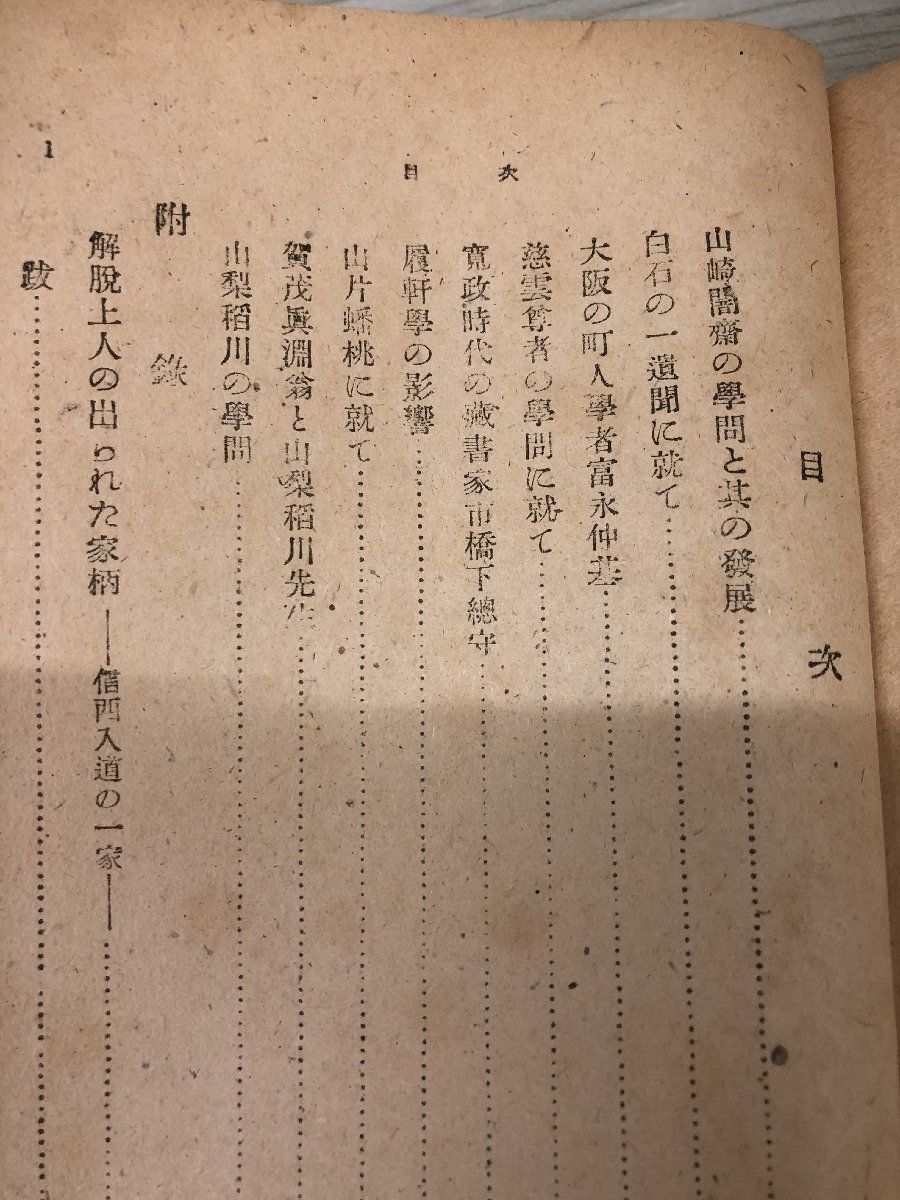 目次
山崎闇齋の學問と其の發展
白石の一遺聞に就て
大阪の町人學者富永仲基
慈雲尊者の學問に就て
寬政時代の藏書家市橋下總守
履軒學の影響
山片蟠桃に就て
賀茂眞淵翁と山梨稻川先生
山梨稻川の學問
附錄
解脫上人の出られた家柄――信西入道の一家――
跋
目次
1